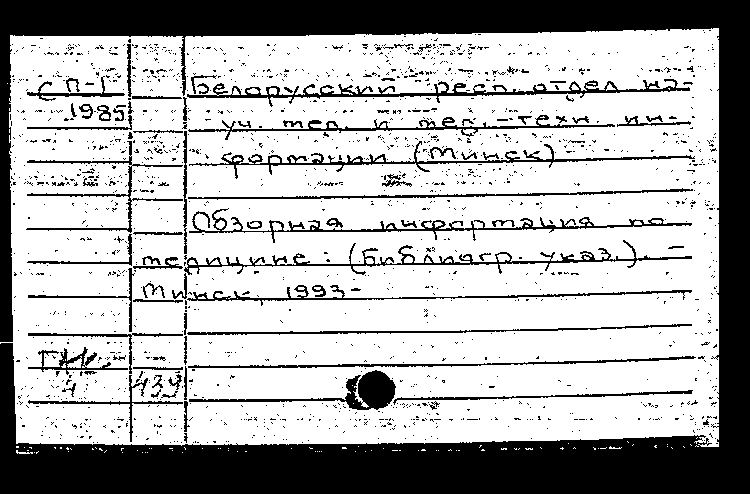 С П-1
1985
Белорусский респ. отдел на-
уч. мед. и мед.-техн. ин-
формации (Минск)
Обзорная информация по
медицине: (Библиогр. указ.). –
Минск, 1993-
4 439